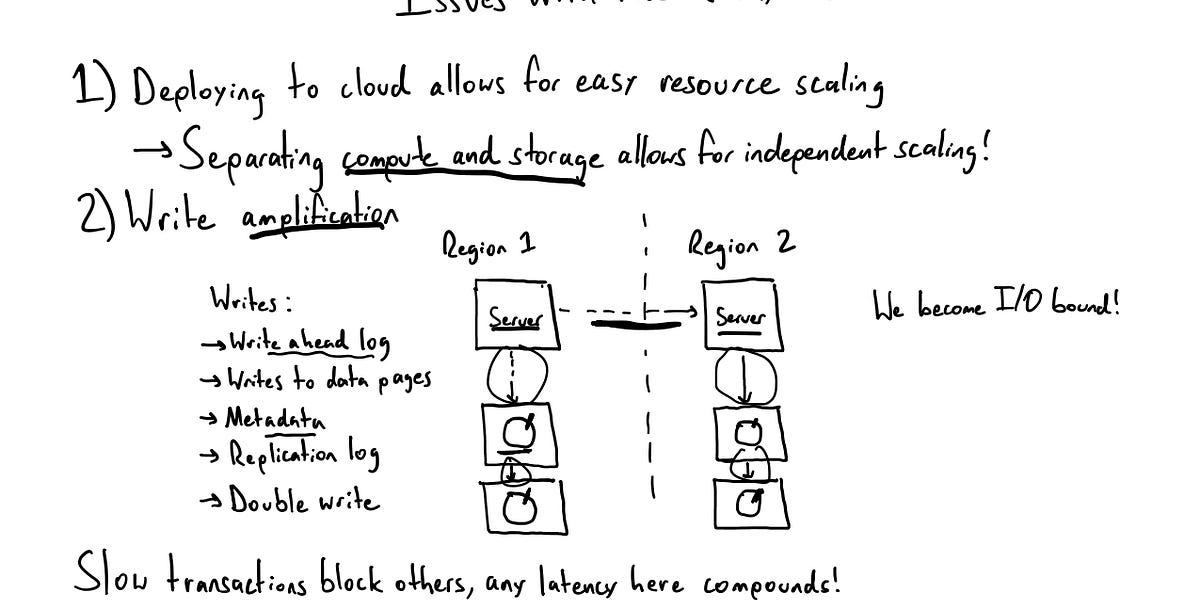 Issues with
1) Deploying to cloud allows for easy resource scaling
→ Separating compute and storage allows for independent scaling!
2) Write amplification
Region 1
Region 2
Writes:
→ Write ahead log
→ Writes to data pages
→ Metadata
→ Replication log
→ Double write
Server
Server
We become I/O bound!
Slow transactions block others, any latency here compounds!